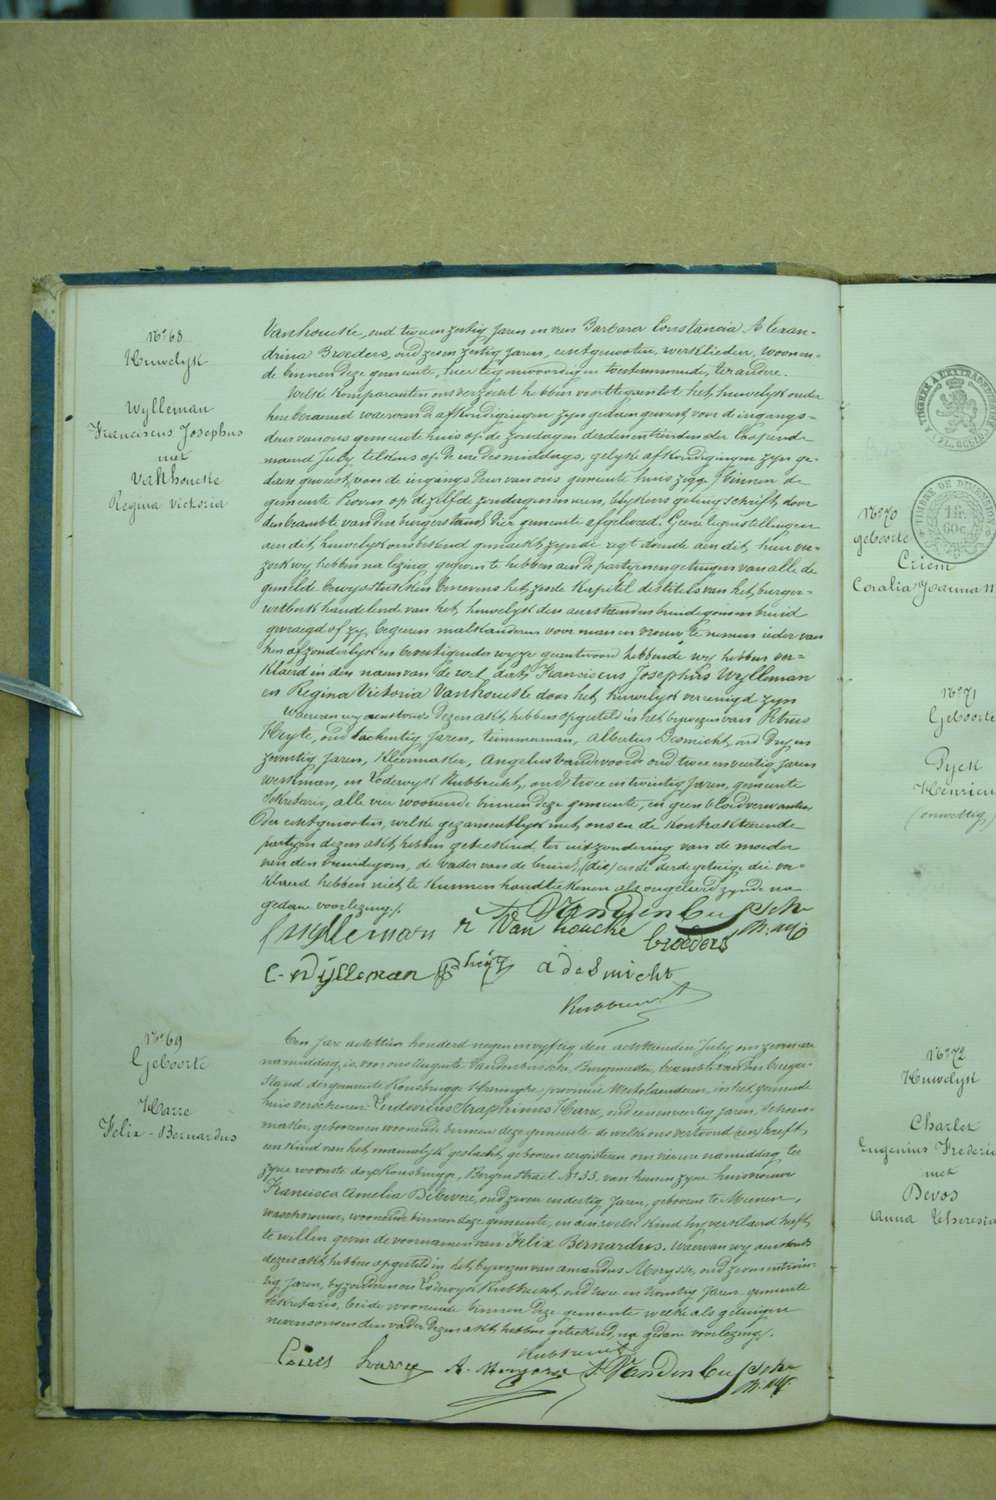 No. 68
Huwelyk
Wylleman
Franciscus Josephus
met
Vanhoucke
Regina Victoria
Vanhoucke, oud twee en zestig Jaren en van Barbara Constancia Alexan-
drina Broeders, oud zes en zestig Jaren, echtgenooten, werklieden, woonen-
de binnen deze gemeente, hier tegenwoordig en toestemmende, ter andere.
Welke komparanten ons verzocht hebben voorttegaan tot het huwelyk onder
hen beraemd waervan de afkondigingen zyn gedaen geweest voor de ingangs-
deur van ons gemeente huis op de zondagen derden en tienden der loopende
maend July, telkens op de ure des middags, gelyke afkondigingen zyn ge-
daen geweest voor de ingangs deur van ons gemeente huis binnen de
gemeente Proven op de zelfde zondagen en uren, blykens getuigschrift door
den beambte van den burgerstand dier gemeente afgeleverd. Geene tegenstellingen
aen dit huwelyk ons bekend gemaekt zynde regt doende aen dit hun ver-
zoek wy hebben na lezing gegeven te hebben aen de partyen en getuigen van alle de
gemelde bewysstukken benevens het zesde kapittel des titels van het burger-
wetboek handelend van het huwelyk den aenstaenden bruidegom en bruid
gevraegd of zy begeeren malkanderen voor man en vrouw te nemen ieder van
hen afzonderlyk en bevestigender wyze geantwoord hebbende wy hebben ver-
klaerd in den naem van de wet, dat Franciscus Josephus Wylleman
en Regina Victoria Vanhoucke door het huwelyk vereenigd zyn
Waervan wy aenstonds dezen akt hebben opgesteld in het bywezen van Petrus
Heyte, oud tachentig Jaren, timmerman, Albertus Desmicht, oud dry en
zeventig Jaren, Kleermaker, Angelus Vandevoorde oud twee en veertig Jaren
werkman, en Lodewyk Rubbrecht, oud twee en twintig Jaren, gemeente
Sekretaris, alle vier woonende binnen deze gemeente, en geen bloedverwanten
Der echtgenooten, welke gezamentlyk met ons en de kontrakterende
partyen dezen akt hebben geteekend, ter uitzondering van de moeder
van den bruidegom, de vader van de bruid, (dit) en de derde getuige die ver-
klaerd hebben niet te kunnen handteekenen als ongeleerd zynde na
gedane voorlezing.
f wylleman r Van houcke A Vandenbussche
broeders
C. Wylleman P heyte a desmicht
Rubbrecht
No. 69
Geboorte
Harre
Felix-Bernardus
Een Jaer achttien honderd negen en vyftig den achttienden July, om zeven ure
namiddag, is voor ons Auguste Vandenbussche, Burgmeester, beambte van den burger-
stand der gemeente Rousbrugge Haringhe, provincie Westvlaenderen, in het gemeente
huis verschenen Ludovicus Seraphinus Harre, oud een en veertig Jaren, schoen-
maker, geboren en woonende binnen deze gemeente de welke ons vertoond (en) heeft,
een kind van het mannelyk geslacht, geboren eergisteren om nieuw ure namiddag ter
zyne woonste dorp Rousbrugge, Bergenstraet No. 33. van hem en zyne huisvrouw
Francisca Amelia Dibevere, oud zeven en dertig Jaren, geboren te Meenen,
waschvrouw, woonende binnen deze gemeente, en aen welk kind hy verklaerd heeft,
te willen geven de voornamen van Felix Bernardus. Waervan wy aenstonds
dezen akt hebben opgesteld in het bywezen van Amandus Morysse, oud
tig Jaren, byzonderen en Lodewyk Rubbrecht, oud twee en twintig Jaren gemeente
Sekretaris, beide woonende binnen deze gemeente welke als getuigen
nevens ons en den vader dezen akt hebben geteekend, na gedane voorlezing.
Rubbrecht
Louis harre A. Morysse A Vandenbussche
No. 70
geboorte
Criem
Coralia Joanna M
TIMBRE DE DIMENSION
No. 71
Geboorte
Pyck
Henricu
(onwettig)
No. 72
Huwelyk
Charlet
Eugenius Frederic
met
Devos
Anna Theresia